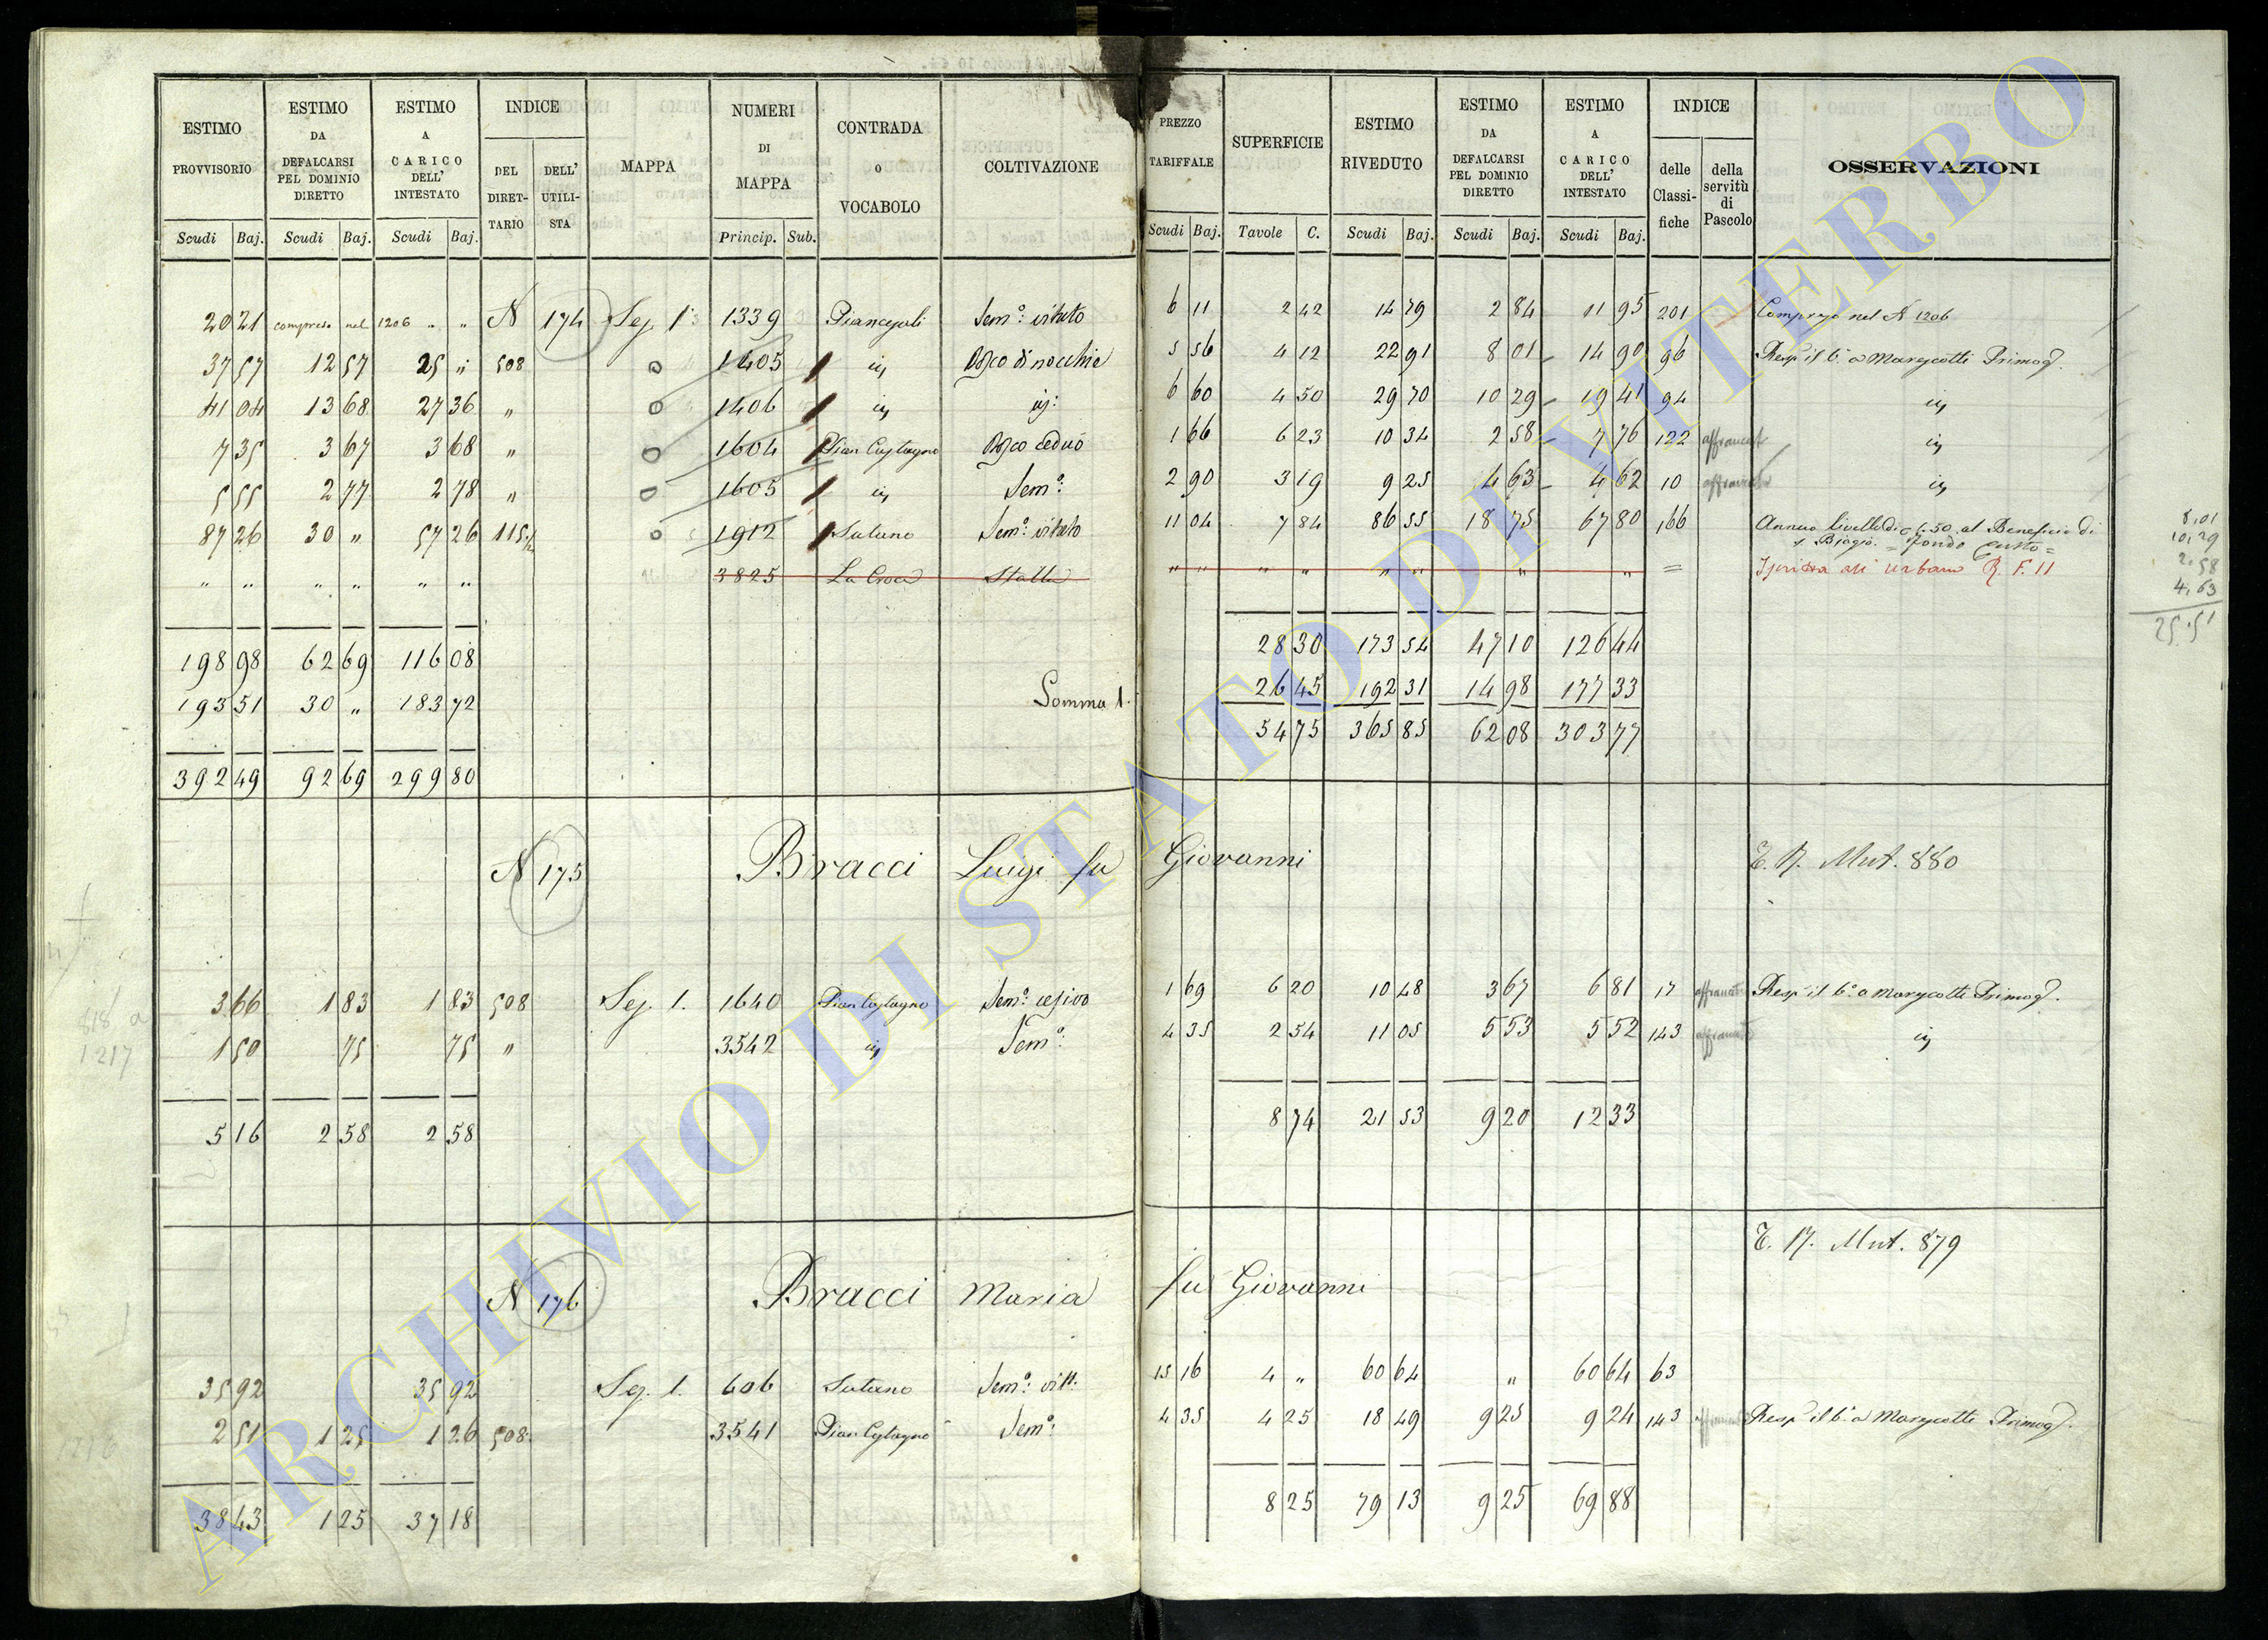 ESTIMO PROVVISORIO | ESTIMO DA DEFALCARSI PEL DOMINIO DIRETTO | ESTIMO A CARICO DELL' INTESTATO | INDICE DEL DIRETTARIO | DELL' UTILISTA | MAPPA | NUMERI DI MAPPA | CONTRADA o VOCABOLO | COLTIVAZIONE | PREZZO TARIFFALE | SUPERFICIE | ESTIMO RIVEDUTO | ESTIMO DA DEFALCARSI PEL DOMINIO DIRETTO | ESTIMO A CARICO DELL' INTESTATO | INDICE delle Classifiche | della servitù di Pascolo | OSSERVAZIONI
Scudi Baj. | Scudi Baj. | Scudi Baj. | Princip. Sub. | Scudi Baj. | Tavole C. | Scudi Baj. | Scudi Baj. | Scudi Baj.
20 21 | compreso nel 1206 " " | N 174 | Sez. 1ª | 1339 | Semo: vitato | 6 11 | 2 42 | 14 79 | 2 84 | 11 95 | 201 | Compreso nel N 1206
37 57 | 12 57 | 25 " | 508 | o | 1405 | id | Bosco di nocchie | 5 56 | 4 12 | 22 91 | 8 01 | 14 90 | 96 | Resp. il 6º a Marescotti Primog.
41 04 | 13 68 | 27 36 | " | o | 1406 | id | id: | 6 60 | 4 50 | 29 70 | 10 29 | 19 41 | 94 | id
7 35 | 3 67 | 3 68 | " | o | 1604 | Pian Castagno | Bosco ceduo | 1 66 | 6 23 | 10 34 | 2 58 | 7 76 | 122 | affrancat | id
5 55 | 2 77 | 2 78 | " | o | 1605 | id | Semo: | 2 90 | 3 19 | 9 25 | 4 63 | 4 62 | 10 | affrancat | id
87 26 | 30 " | 57 26 | 115 1/2 | o | 1912 | Sutano | Semo: vitato | 11 04 | 7 84 | 86 55 | 18 75 | 67 80 | 166 | Annuo livello di 1.50 al Beneficio di
S. Biagio. = Fondo Custo =
" " | " " | " " | 3825 | La Croce | Stalla | " " | " " | " " | " | " | = | Iscritta all' urbano R. F. 11
8,01
10,29
2,58
4,63
25,51
198 98 | 62 69 | 116 08 | 28 30 | 173 54 | 47 10 | 126 44
193 51 | 30 " | 183 72 | Somma 1. | 26 45 | 192 31 | 14 98 | 177 33
54 75 | 365 85 | 62 08 | 303 77
392 49 | 92 69 | 299 80
N 175 | Bracci Luigi fu Giovanni | Mut. 880
3 66 | 1 83 | 1 83 | 508 | Sez. 1. | 1640 | Pian Castagno | Semo: | 1 69 | 6 20 | 10 48 | 3 67 | 6 81 | 17 | affrancat | Resp. il 6º a Marescotti Primog.
1 50 | 75 | 75 | " | 3542 | id | Semo: | 4 35 | 2 54 | 11 05 | 5 53 | 5 52 | 143 | affrancat | id
818 a
1217
5 16 | 2 58 | 2 58 | 8 74 | 21 53 | 9 20 | 12 33
N 176 | Bracci Maria fu Giovanni | Mut. 879
35 92 | 35 92 | Sez. 1. | 606 | Sutano | Semo: vitt. | 15 16 | 4 " | 60 64 | " | 60 64 | 63
2 51 | 1 25 | 1 26 | 508. | 3541 | Pian Castagno | Semo: | 4 35 | 4 25 | 18 49 | 9 25 | 9 24 | 143 | affrancat | Resp. il 6º a Marescotti Primog.
38 43 | 1 25 | 37 18 | 8 25 | 79 13 | 9 25 | 69 88
ARCHIVIO DI STATO DI VITERBO